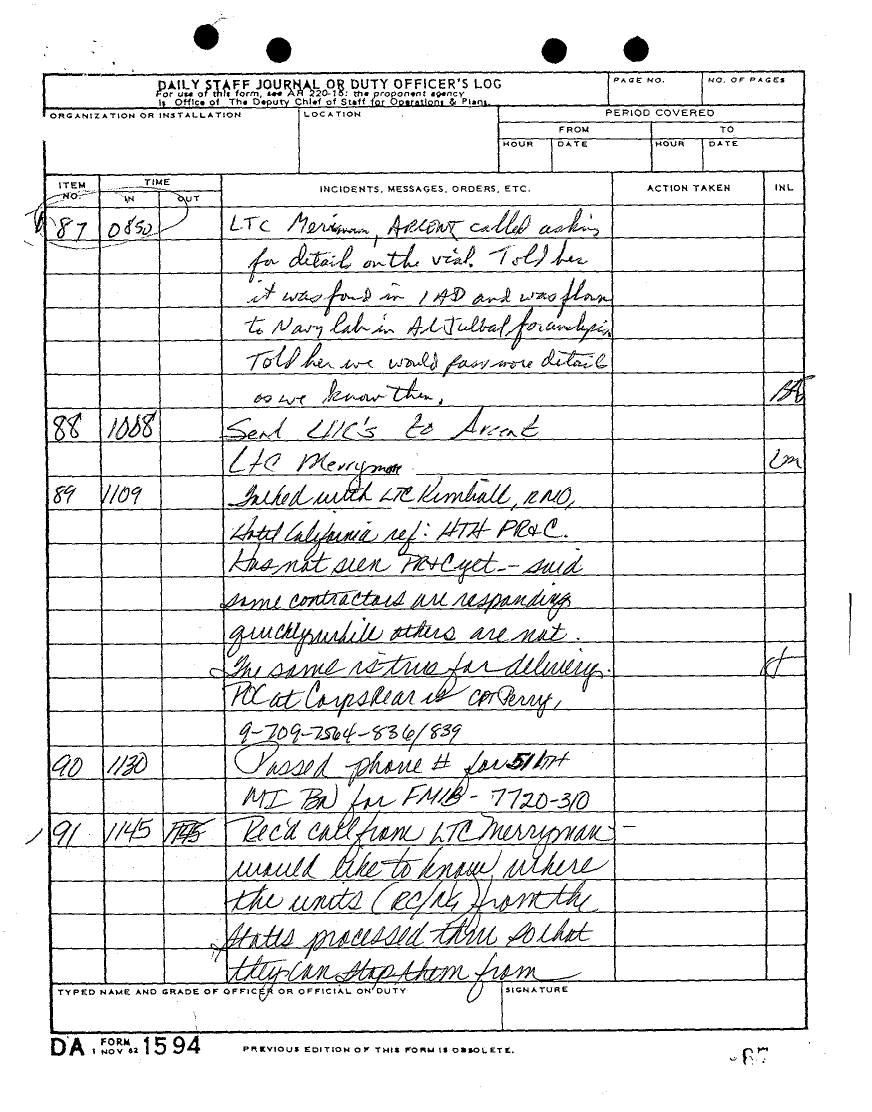 DAILY STAFF JOURNAL OR DUTY OFFICER'S LOG
For use of this form, see AR 220-15: the proponent agency
is Office of The Deputy Chief of Staff for Operations & Plans.
PAGE NO.
NO. OF PAGES
ORGANIZATION OR INSTALLATION
LOCATION
PERIOD COVERED
FROM
TO
HOUR DATE HOUR DATE
ITEM NO.
TIME
IN OUT
INCIDENTS, MESSAGES, ORDERS, ETC.
ACTION TAKEN
INL
87 0850 LTC Merryman, ARCENT called asking
for details on the vial. Told her
it was found in 1AD and was flown
to Navy lab in Al Julbal for analysis
Told her we would pass more details
as we know them.
88 1008 Send UIC's to Arcent
LTC Merryman Lm
89 1109 Talked with LTC Kimball, RNO,
Hotel California ref: HTH PR&C.
Has not seen PR&C yet -- said
some contractors are responding
quickly while others are not.
The same is true for delivery.
POC at Corps Rear is CPT Perry,
9-709-7564-836/839
90 1130 Passed phone # for 511th
MI Bn for FMIB - 7720-310
91 1145 1145 Rec'd call from LTC Merryman -
would like to know where
the units (RC/NG) from the
States processed thru so that
they can stop them from
TYPED NAME AND GRADE OF OFFICER OR OFFICIAL ON DUTY
SIGNATURE
DA FORM 1 NOV 62 1594
PREVIOUS EDITION OF THIS FORM IS OBSOLETE.